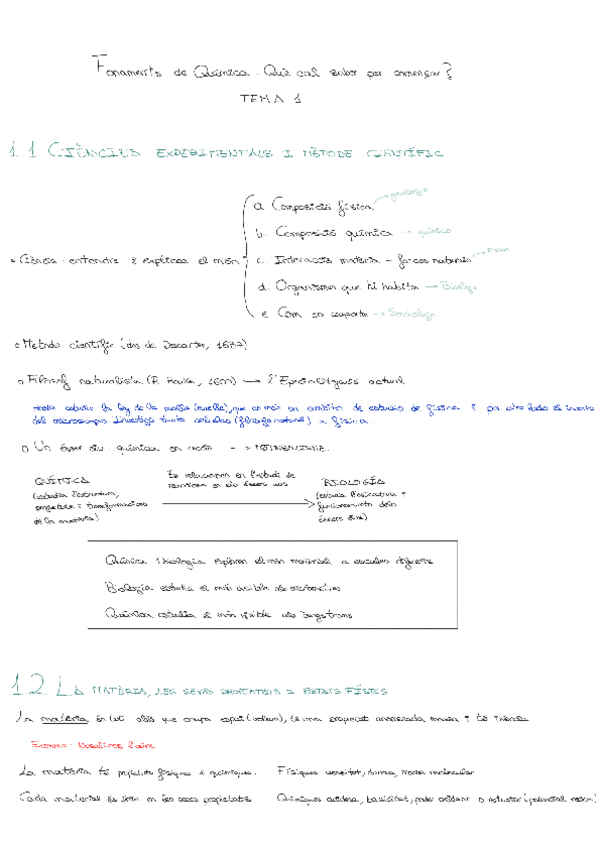 Fonaments de Química. Què cal saber per començar?
TEMA 1
1.1 CIÈNCIES EXPERIMENTALS I MÈTODE CIENTÍFIC
a. Composició física → geòlogo
b. Composició química → químico
Ciència: entendre i explicar el món
c. Interacció matèria - forces naturals → Físico
d. Organismes que hi habiten → Biólogo
e. Com es comporten → Sociólogo
Metode científic (des de Descartes, 1637)
Filosof naturalista (R. Hooke, 1600) → l'Epistemòlegs actual
estudia la ley de la molla (muelle), que en món en àmbits de estudio de física i por otro lado el invento
del microscopio. Investigó tanto células (filosofia natural) a física.
Un ésser viu: química en acció → METABOLISME.
QUÍMICA
(estudia l'estructura,
propietats i transformacions
de la matèria)
Es relacionen en l'estudi de
reaccions en els éssers vius
BIOLOGÍA
(estudia l'estructura i
funcionament dels
éssers vius)
Química i biología exploren el món material a escales diferents
Biología estudia el món visible als micrometres
Química estudia el món visible als àngstroms
1.2 LA MATÈRIA, LES SEVES PROPIETATS I ESTATS FÍSICS
La matèria és tot allò que ocupa espai (volum), té una propietat anomenada massa i té inèrcia
Exemples: Nosaltres, l'aire
La matèria té propietats físiques i químiques.
Físiques: densitat, duresa, massa molecular
Cada material és únic en les seves propietats
Químiques: acidesa, basicitat, poder oxidant o reductor (potencial redox)